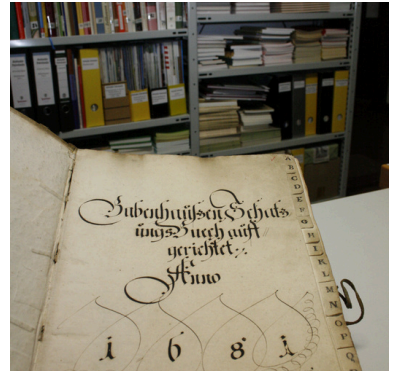 Bubenhaußen Schatz
ungs Buech auff
gerichtet
Anno
1681
A
B
C
D
E
F
G
H
I
K
L
M
N
O
P
Q